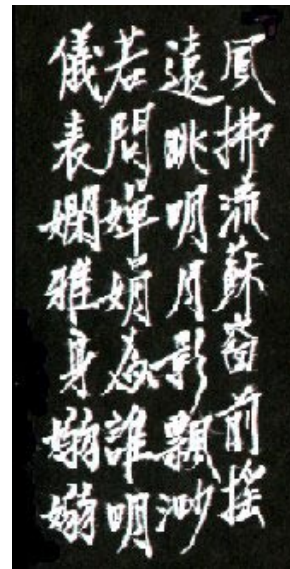 鳳拂流蘇窗前搖
遠眺明月影飄渺
若問嬋娟為誰明
儀表嫻雅身嫋嫋